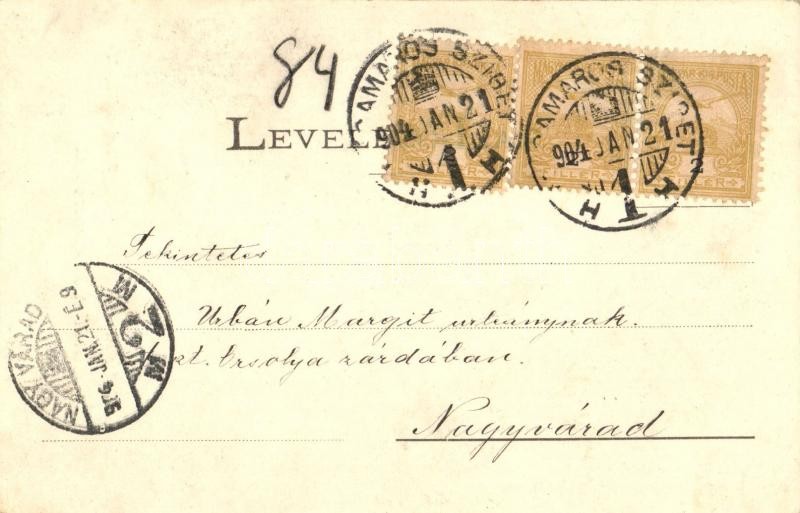 84
MARAMAROS SZIGET
904 JAN 21
1
T H
MARAMAROS SZIGET
904 JAN 21
1
T H
FILLÉR
FILLÉR
LEVELE
Tekintetes
Urbán Margit urhánynak.
Szt. Orsolya zárdában.
Nagyvárad
NAGYVÁRAD
904 JAN. 21. E 9
M 2 M